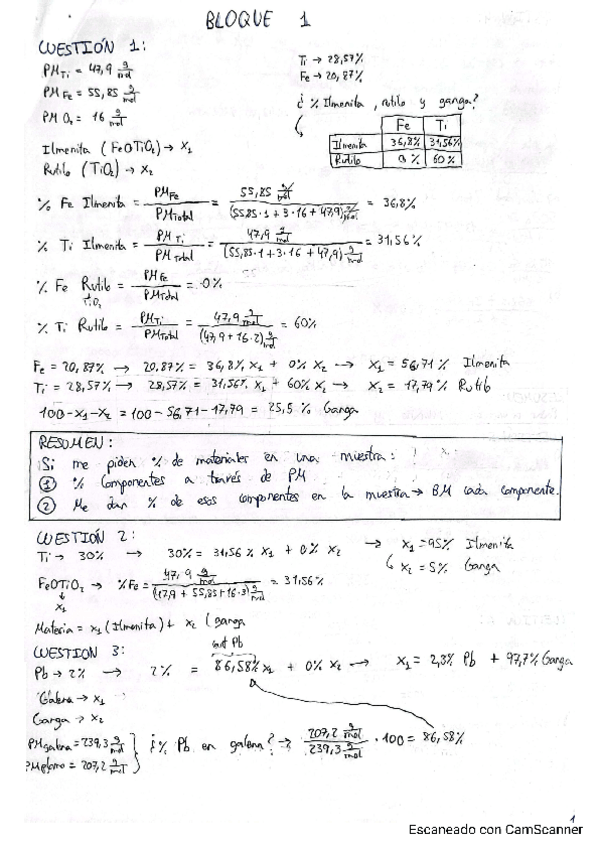 BLOQUE 1
CUESTIÓN 1:
PM Ti = 47,9 g/mol
PM Fe = 55,85 g/mol
PM O₂ = 16 g/mol
Ti → 28,57%
Fe → 20,87%
¿ % Ilmenita, rutilo y ganga?
Fe Ti
Ilmenita 36,8% 31,56%
Rutilo 0% 60%
Ilmenita (FeOTiO₂) → x₁
Rutilo (TiO₂) → x₂
% Fe Ilmenita = PM Fe / PM Total = 55,85 g/mol / (55,85·1 + 3·16 + 47,9) g/mol = 36,8%
% Ti Ilmenita = PM Ti / PM Total = 47,9 g/mol / (55,85·1 + 3·16 + 47,9) g/mol = 31,56%
% Fe Rutilo = PM Fe / PM Total = 0%
TiO₂
% Ti Rutilo = PM Ti / PM Total = 47,9 g/mol / (47,9 + 16·2) g/mol = 60%
Fe = 20,87% → 20,87% = 36,8% x₁ + 0% x₂ → x₁ = 56,71% Ilmenita
Ti = 28,57% → 28,57% = 31,56% x₁ + 60% x₂ → x₂ = 17,79% Rutilo
100-x₁-x₂ = 100 - 56,71 - 17,79 = 25,5% Ganga
RESUMEN:
Si me piden % de materiales en una muestra:
① % Componentes a través de PM
② Me dan % de esos componentes en la muestra → BM cada componente.
CUESTIÓN 2:
Ti → 30% → 30% = 31,56% x₁ + 0% x₂ → x₁ = 95% Ilmenita
x₂ = 5% Ganga
FeOTiO₂ → %Fe = 47,9 g/mol / (47,9 + 55,85 + 16·3) g/mol = 31,56%
x₁
Materia = x₁ (Ilmenita) + x₂ (ganga
CUESTIÓN 3:
Pb → 2% → 2% = 86,58% x₁ + 0% x₂ → x₁ = 2,3% Pb + 97,7% Ganga
Galena → x₁
Ganga → x₂
PM galena = 239,3 g/mol
PM plomo = 207,2 g/mol
¿% Pb en galena? → 207,2 g/mol / 239,3 g/mol · 100 = 86,58%
1
Escaneado con CamScanner